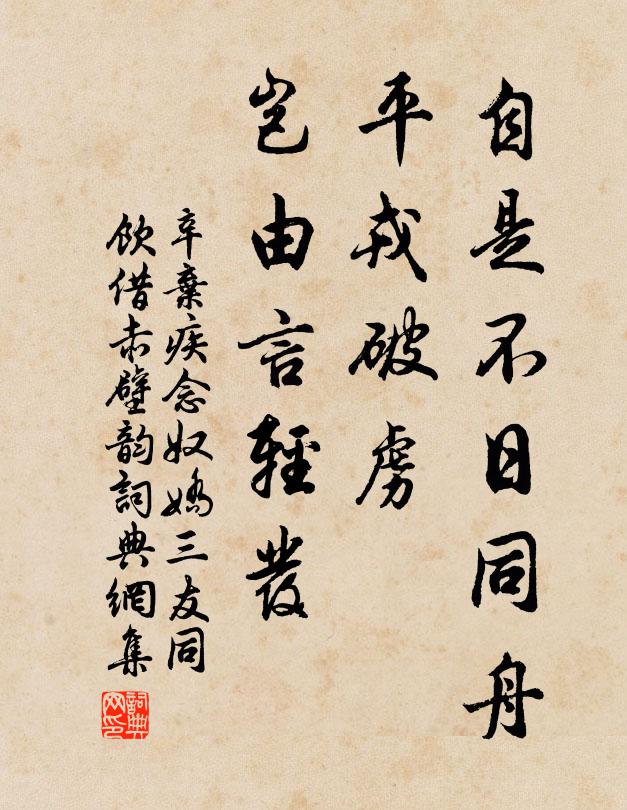 自是不日同舟
平戎破虜
豈由言輕發
辛棄疾念奴嬌三友同
飲借赤壁韵詞典網集
詞典网印